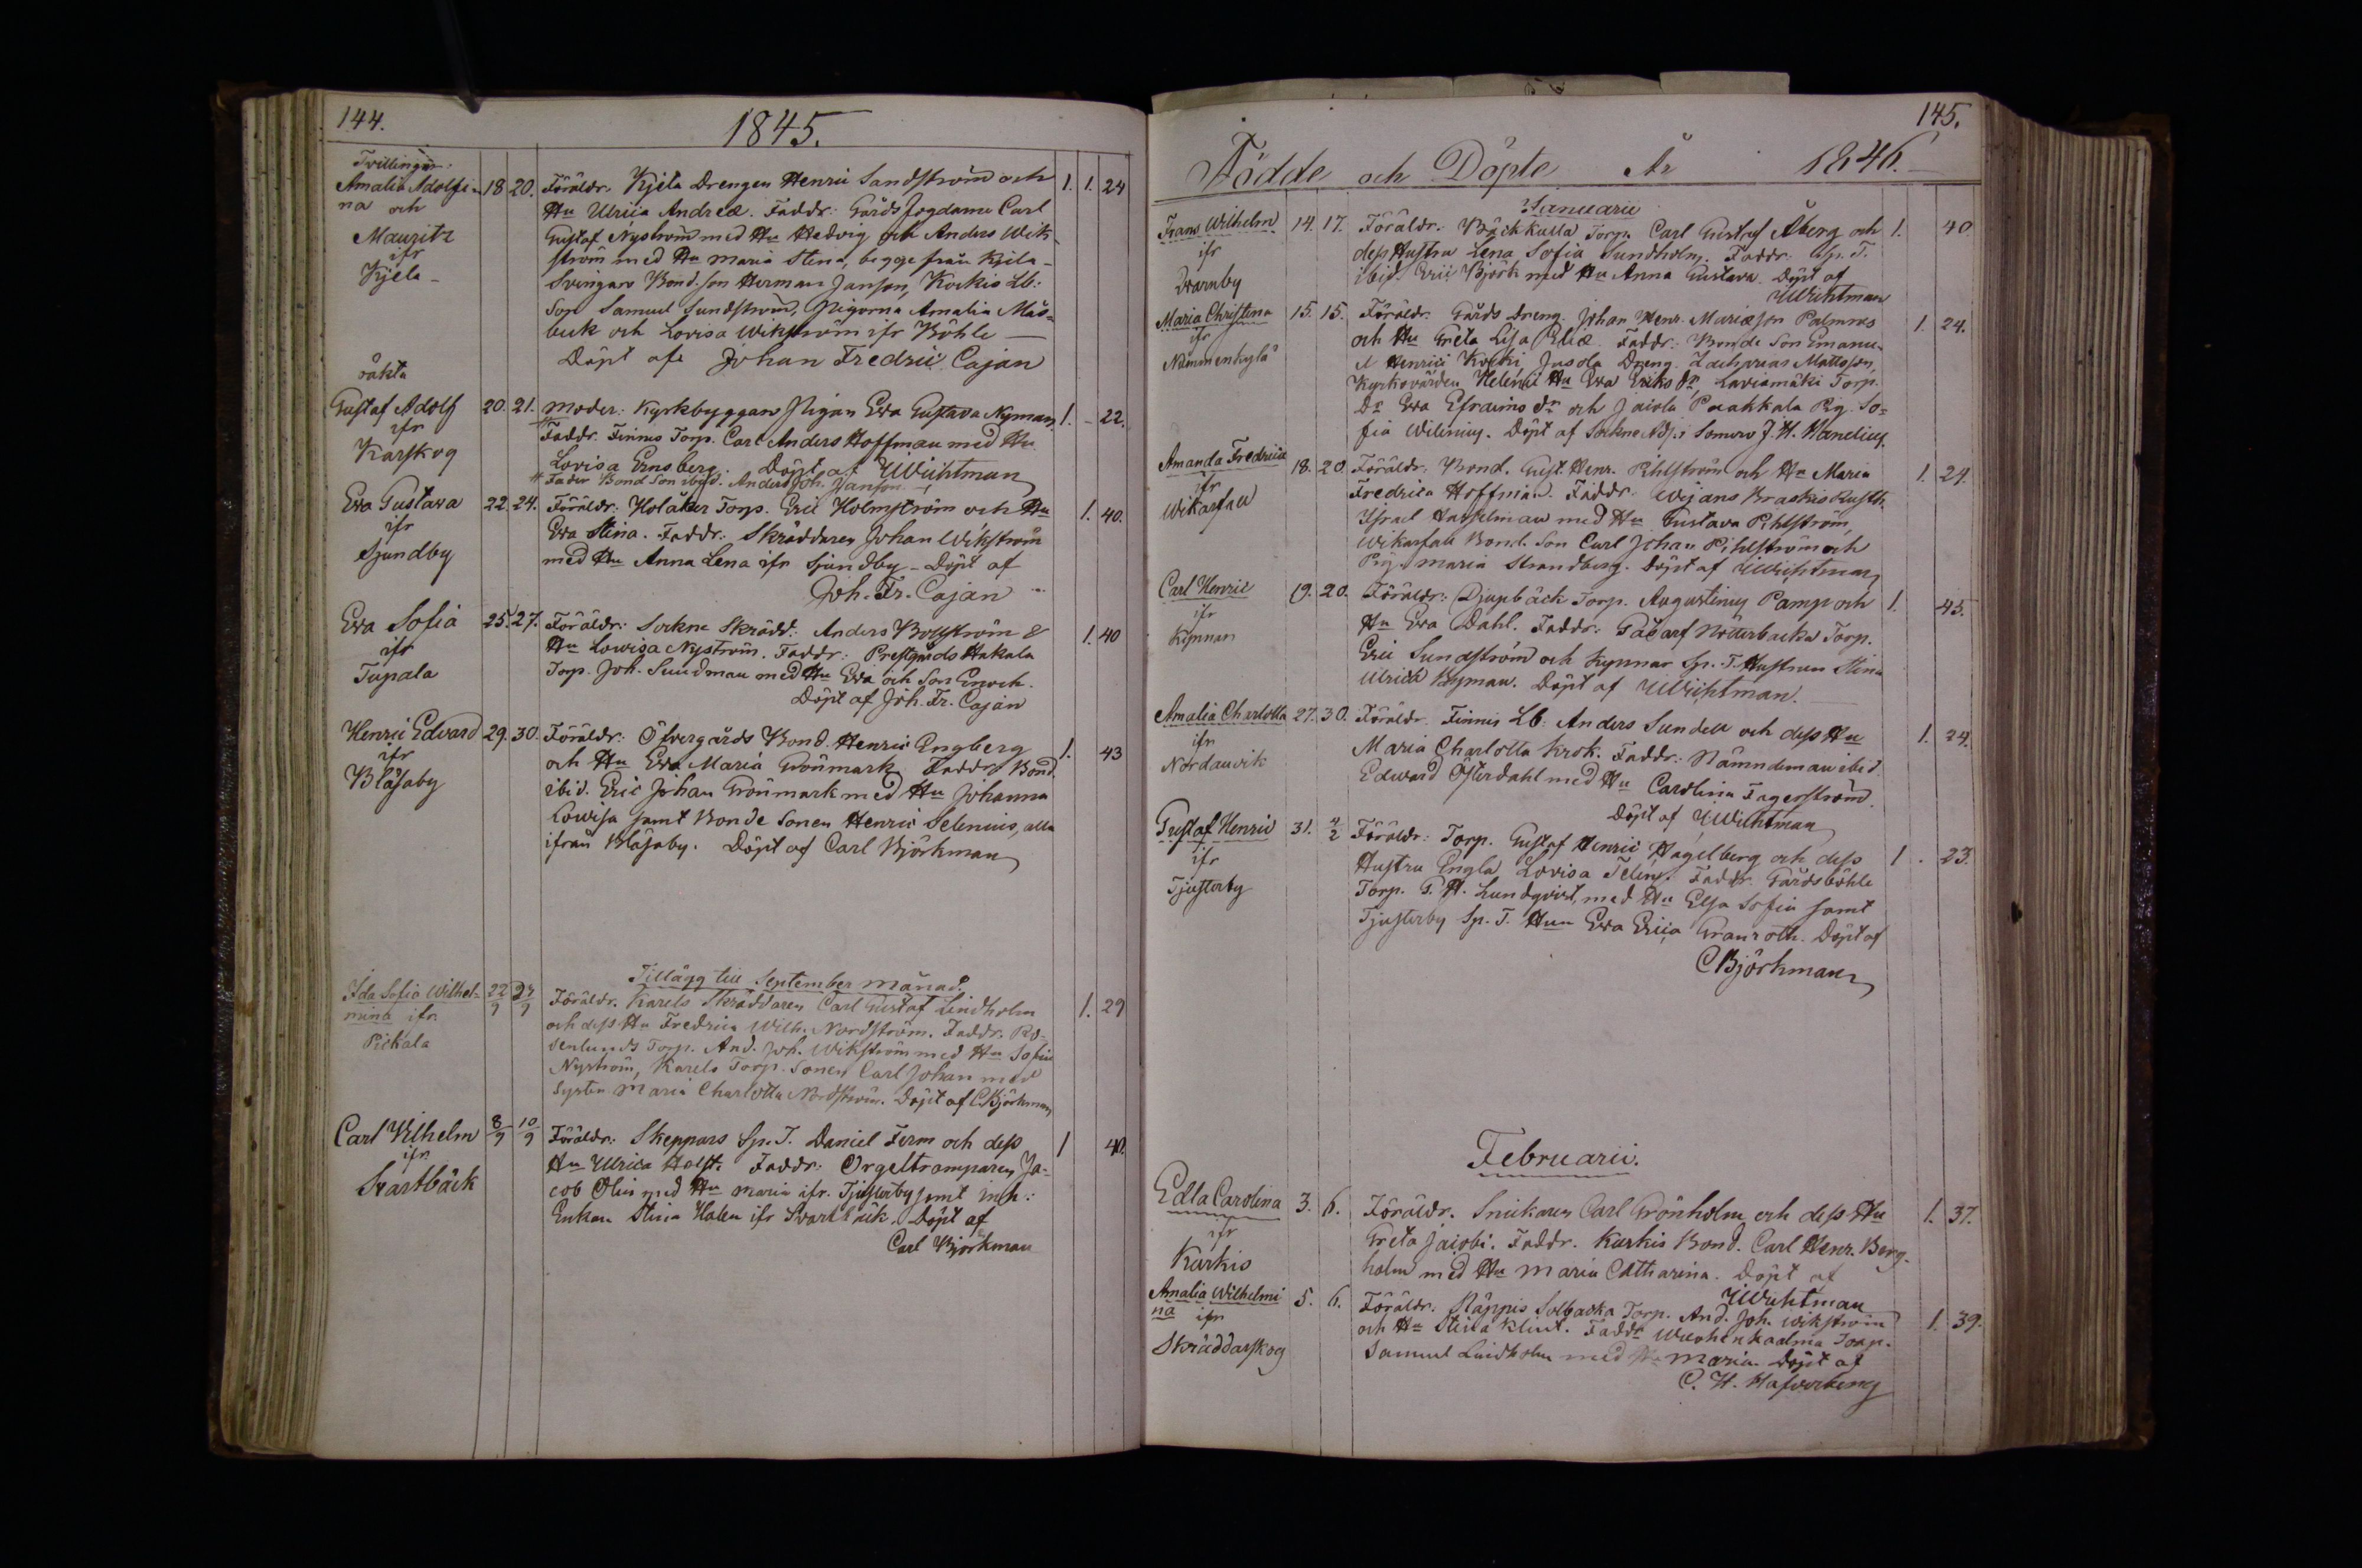 144.
1845.
Tvillingar.
Amalia Adolfi-
na och
Mauritz
ifr
Kjela
18 20. Föräldr. Kjela Drengen Henric Sandström och 1. 1. 24
Hu Ulrica Andreæ. Faddr: Gårds fogdame Carl
Gustaf Nyström med Hu Hedvig och Anders Wik-
ström med Hu Maria Stena, begge från Kjela
Svingars Bond. son Herman Janson, Kockis Lb:
Son Samuel Sundström, Pigorna Amalia Mås-
beck och Lovisa Wikström ifr Böhle
Döpt af Johan Fredric Cajan
oäkta
Gustaf Adolf
ifr
Karskog
20. 21. Moder: Kyrkbyggars Pigan Eva Gustava Nyman 1. - 22.
Faddr. Finnes Torp. Carl Anders Hoffman med Hu
Lovisa Ernsberg. Döpt af Wichtman
# Fader Bond Son ibid. Anders Joh. Janson
Eva Gustava
ifr
Sjundby
22. 24. Föräldr: Holåker Torp. Eric Holmström och Hu 1. 40.
Eva Stina. Faddr: Skräddaren Johan Wikström
med Hu Anna Lena ifr Sjundby - Döpt af
Joh. Fr. Cajan
Eva Sofia
ifr
Tupala
25. 27. Föräldr: Sockne Skrädd: Anders Bollström & 1. 40
Hu Lowisa Nyström. Faddr: Prestgårds Hakala
Torp. Joh. Sundman med Hu Eva och Son Enoch.
Döpt af Joh. Fr. Cajan
Henric Edvard
ifr
Blåsaby
29. 30. Föräldr: Öfvergårds Bond. Henric Engberg 1. 43
och Hu Eva Maria Grönmark Faddr Bond.
ibid. Eric Johan Grönmark med Hu Johanna
Lowisa samt Bonde Sonen Henric Selenius, alla
ifrån Blåsaby. Döpt af Carl Björkman
Tillägg till September månad.
Ida Sofia Wilhel-
mina ifr
Pickala
22/9 27/9 Föräldr. Karels Skräddaren Carl Gustaf Lindholm 1. 29
och dess Hu Fredrica Wilh. Nordström. Faddr. Ro-
senlunds Torp. And. Joh. Wikström med Hu Sofia
Nyström, Karels Torp. Sonen Carl Johan med
Systern Maria Charlotta Nordström. Döpt af C Björkman
Carl Vilhelm
ifr
Svartbäck
8/9 10/9 Föräldr: Skeppars Sp. T. Daniel Ferm och dess 1 40.
Hu Ulrica Holst. Faddr: Orgeltramparen Ja-
cob Olin med Hu Maria ifr. Tjusterby samt inh:
Enkan Stina Halen ifr Svartbäck. Döpt af
Carl Björkman
145.
Födde och Döpte År 1846.
Januarii
Frans Wilhelm
ifr
Dvarnby
14. 17. Föräldr: Bäckkulla Torp. Carl Gustaf Åberg och 1. 40
dess Hustru Lena Sofia Sundholm. Faddr: Sp. T.
ibid. Eric Björk med Hu Anna Gustava. Döpt af
Wichtman
Maria Christina
ifr
Nummenkylä
15. 15. Föräldr. Gårds Dreng. Johan Henr. Mariæson Palmros 1. 24.
och Hu Greta Lisa Eliæ. Faddr: Bonde Son Emanu-
el Henrici Kocki, Jusola Dreng. Zachrias Mattsson,
Kyrkovärden Helenii Hu Eva Eriks dr Laviamäki Torp.
Dr Eva Efraims dr och Jaiola Paakkala Pig. So-
fia Wilenius. Döpt af Sockne Adj. i Somero J. H. Wandelius.
Amanda Fredrica
ifr
Wikarfall
18. 20 Föräldr: Bond. Gust. Henr. Pihlström och Hu Maria 1. 24.
Fredrica Hoffman. Faddr. Wejans Braskis Rusth.
Israel Hasselman med Hu Gustava Pihlström,
Wikarfall Bond. Son Carl Johan Pihlström och
Pig. Maria Strandberg. Döpt af Wichtman
Carl Henric
ifr
Kynnar
19. 20. Föräldr: Djupbäck Torp. Augustinus Pamp och 1. 45.
Hu Eva Dahl. Faddr: Gåsarf Nöderbacka Torp.
Eric Sundström och Kynnar Sp. T. Hustrun Stina
Ulrica Byman. Döpt af Wichtman.
Amalia Charlotta
ifr
Nordanvik
27. 30. Föräldr. Finnis Lb: Anders Sundell och dess Hu 1. 24.
Maria Charlotta Krok. Faddr: Nämndeman ibid.
Edward Österdahl med Hu Carolina Fagerström.
Döpt af Wichtman
Gustaf Henric
ifr
Tjusterby
31. 4/2 Föräldr: Torp. Gustaf Henric Hagelberg och dess 1. 23.
Hustru Engla Lovisa Telén. Faddr. Gårdsböhle
Torp. G. A. Lundqvist, med Hu Elsa Sofia samt
Tjusterby Sp. T. Hun Eva Erica Granroth. Döpt af
C Björkman
Februarii.
Edla Carolina
ifr
Kurkis
3. 6. Föräldr. Snickaren Carl Grönholm och dess Hu 1. 37.
Greta Jacobi. Faddr. Kurkis Bond. Carl Henr. Berg-
holm med Hu Maria Catharina. Döpt af
Wichtman
Amalia Wilhelmi
na ifr
Skräddarskog
5. 6. Föräldr. Näppis Solbacka Torp. And. Joh. Wikström 1. 39.
och Hu Stina Klint. Faddr Torp.
Samuel Lindholm med Hu Maria. Döpt af
C. H.